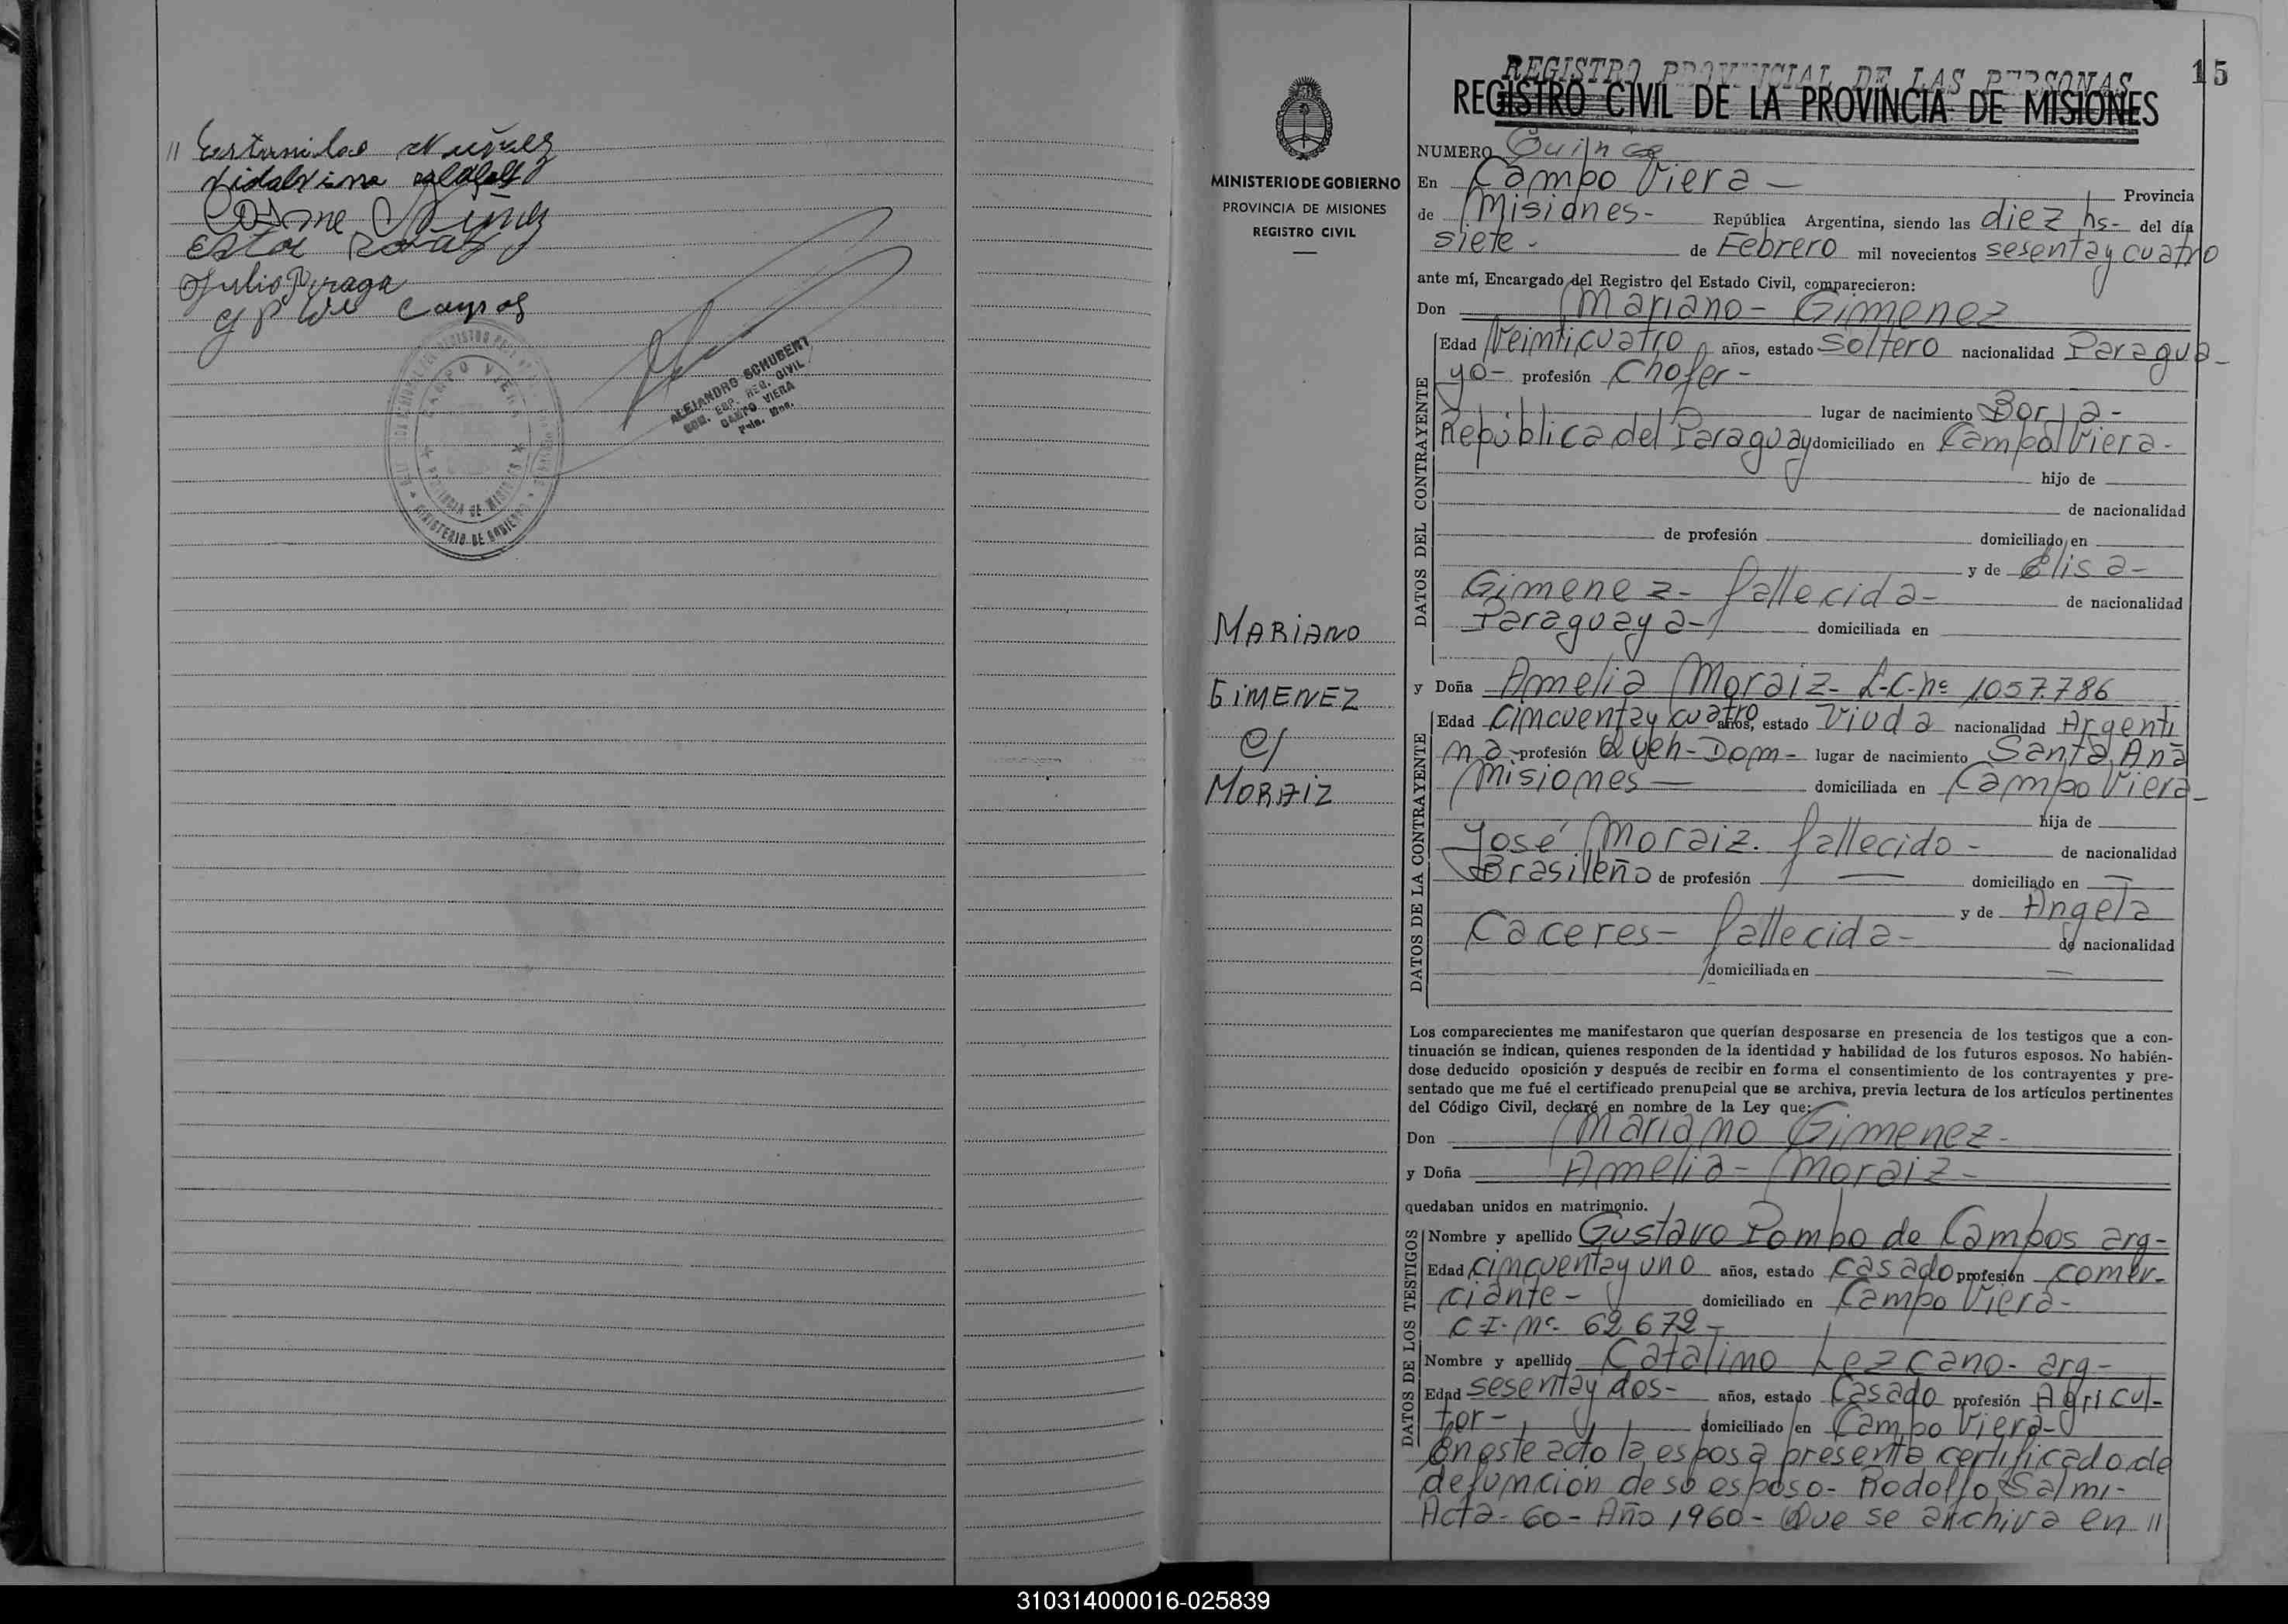 " Estanislao Nuñez
Cosme Nuñez
Ester Rojas
Julio Braga
G P de Campos
CAMPO VIERA
PROVINCIA DE MISIONES
MINISTERIO DE GOBIERNO
ALEJANDRO SCHUBERT
REG. CIVIL
CAMPO VIERA
MINISTERIO DE GOBIERNO
PROVINCIA DE MISIONES
REGISTRO CIVIL
MARIANO
GIMENEZ
C/
MORAIZ
REGISTRO PROVINCIAL DE LAS PERSONAS
15
REGISTRO CIVIL DE LA PROVINCIA DE MISIONES
NUMERO Quince
En Campo Viera — Provincia
de Misiones- República Argentina, siendo las diez hs- del día
siete - de Febrero mil novecientos sesenta y cuatro
ante mí, Encargado del Registro del Estado Civil, comparecieron:
Don Mariano - Gimenez
DATOS DEL CONTRAYENTE
Edad Veinticuatro años, estado Soltero nacionalidad Paragua-
yo- profesión Chofer-
lugar de nacimiento Borja-
República del Paraguay domiciliado en Campo Viera-
hijo de
de nacionalidad
de profesión domiciliado en
y de Elisa-
Gimenez- fallecida- de nacionalidad
Paraguaya- domiciliada en
y Doña Amelia Moraiz- L-C-nº 1.057.786
DATOS DE LA CONTRAYENTE
Edad Cincuenta y cuatro años, estado Viuda nacionalidad Argenti
na- profesión Queh-Dom- lugar de nacimiento Santa Ana
Misiones — domiciliada en Campo Viera-
hija de
José Moraiz. fallecido- de nacionalidad
Brasileño de profesión — domiciliado en —
y de Angela
Caceres- fallecida- de nacionalidad
domiciliada en —
Los comparecientes me manifestaron que querían desposarse en presencia de los testigos que a con-
tinuación se indican, quienes responden de la identidad y habilidad de los futuros esposos. No habién-
dose deducido oposición y después de recibir en forma el consentimiento de los contrayentes y pre-
sentado que me fué el certificado prenupcial que se archiva, previa lectura de los artículos pertinentes
del Código Civil, declaré en nombre de la Ley que:
Don Mariano Gimenez-
y Doña Amelia- Moraiz-
quedaban unidos en matrimonio.
DATOS DE LOS TESTIGOS
Nombre y apellido Gustavo Pombo de Campos arg-
Edad cincuenta y uno años, estado casado profesión comer-
ciante- domiciliado en Campo Viera-
C-I- Nº- 62672-
Nombre y apellido Catalino Lezcano- arg-
Edad sesenta y dos- años, estado Casado profesión Agricul-
tor- domiciliado en Campo Viera-
En este acto la esposa presenta certificado de
defuncion de su esposo- Rodolfo Salmi-
Acta-60- Año 1960- Que se archiva en "
310314000016-025839